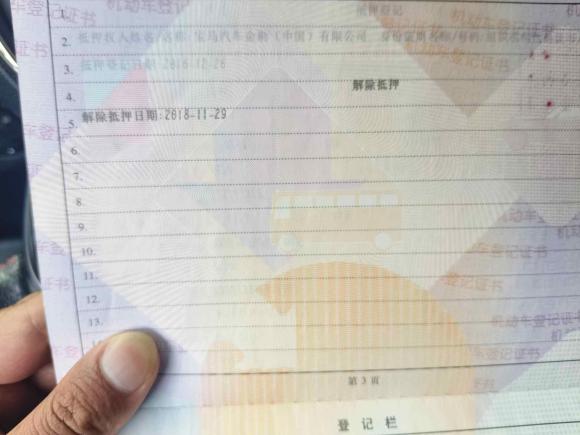 1. 抵押登记
2. 抵押权人姓名/名称:宝马汽车金融(中国)有限公司 身份证明名称/号码:
3. 抵押登记日期:2016-12-26
4. 解除抵押
5. 解除抵押日期:2018-11-29
6.
7.
8.
9.
10.
11.
12.
13.
第 3 页
登 记 栏